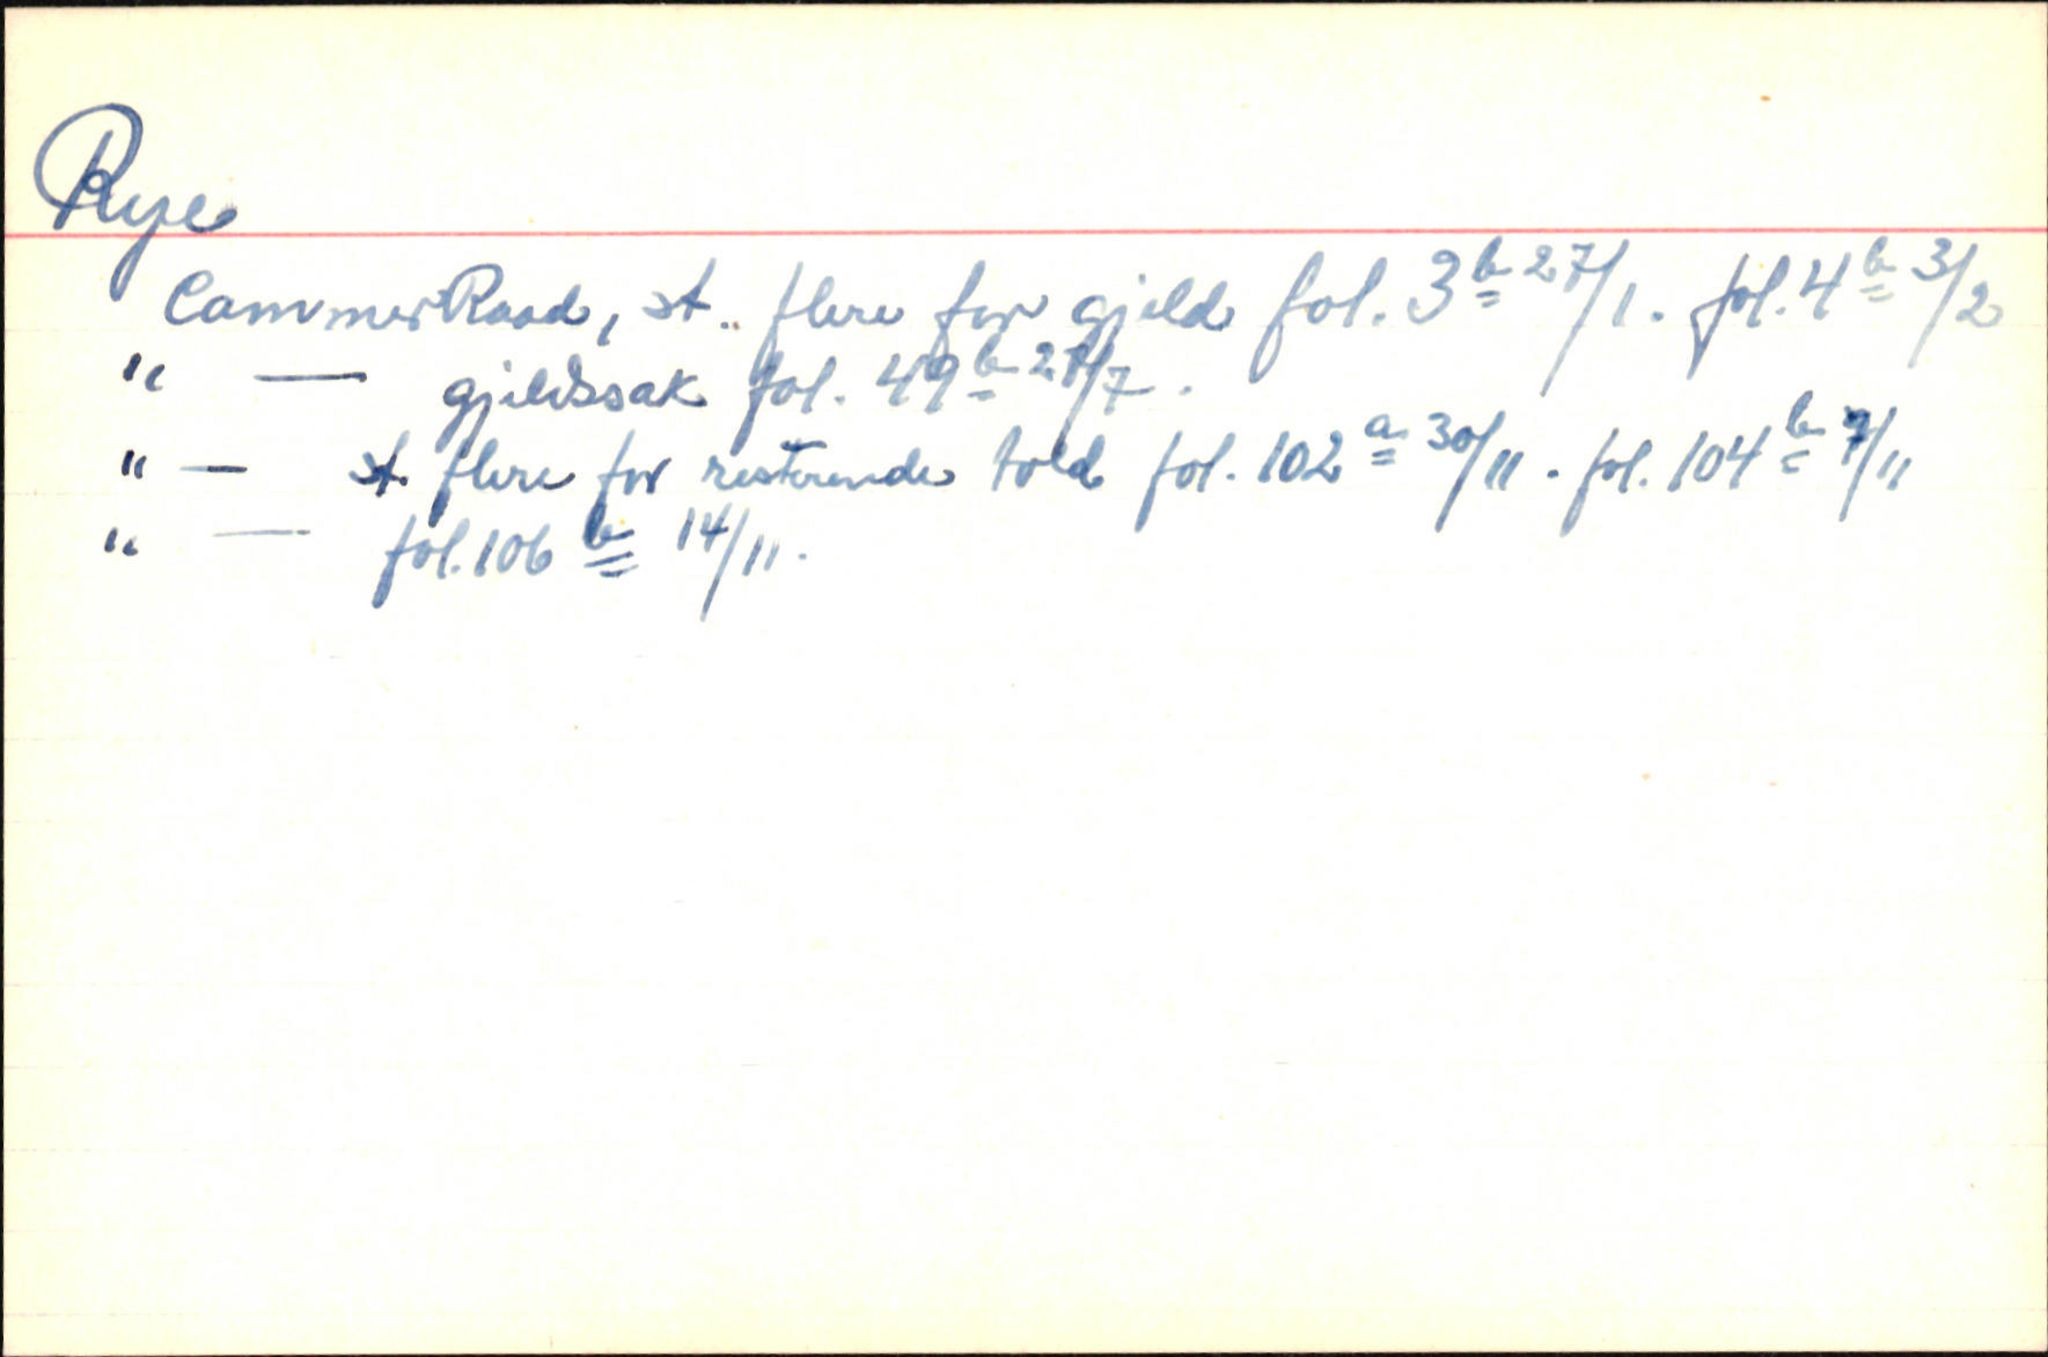 Rye
CammerRaad, st. flere for gjeld fol. 3b 27/1. fol. 4b 3/2
" — gjeldssak fol. 49b /7.
" — st. flere for resterende told fol. 102a 30/11. fol. 104b 7/11
" — fol. 106b 14/11.